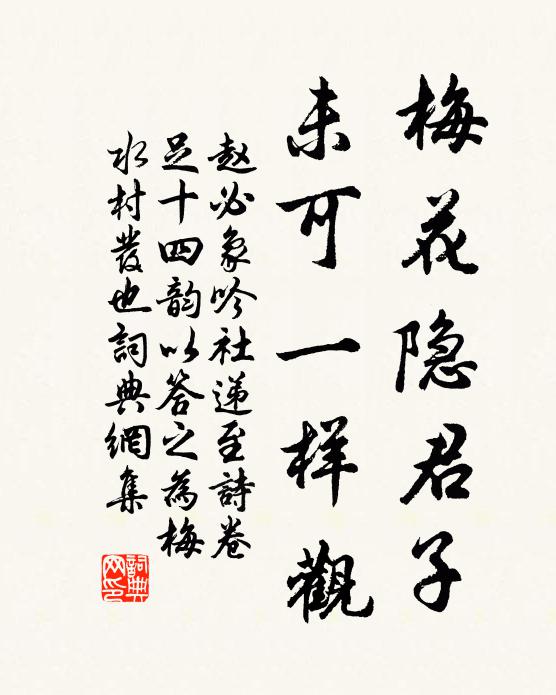 梅花隐君子
未可一样觀
赵必象吟社递至詩卷
足十四韵以答之為梅
水村發也詞典網集
詞典网印